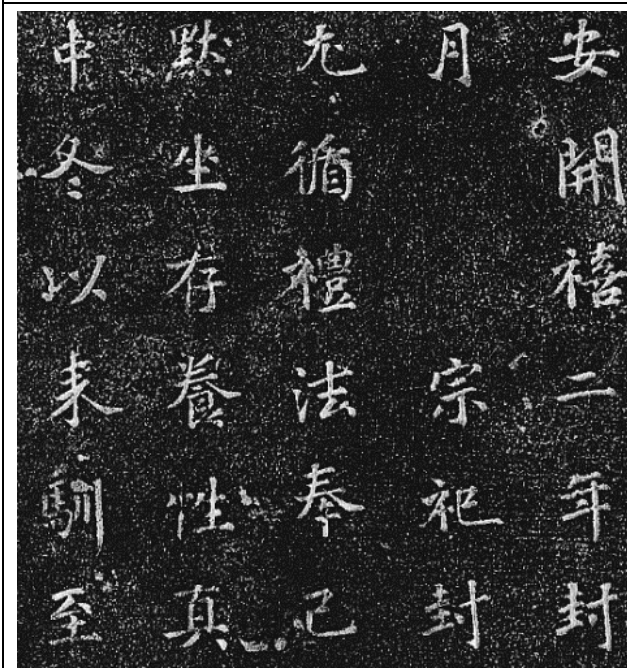 安開禧二年封
月宗祀封
尤循禮法奉己
默坐存養性真
中冬以来馴至